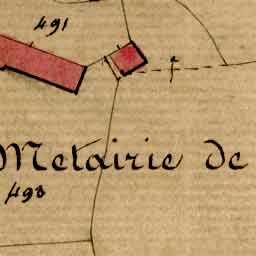 491
Metairie de
493